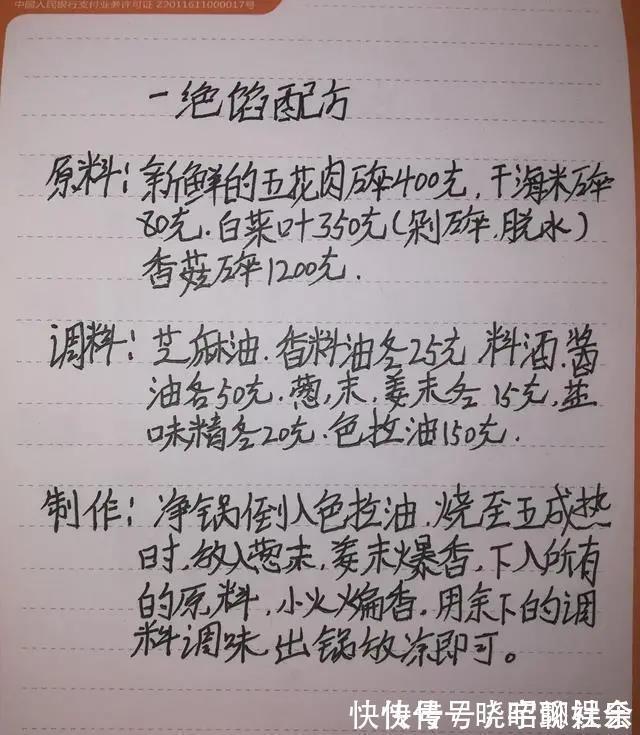 中国人民银行支付业务许可证 Z2011611000017号
一绝馅配方
原料：新鲜的五花肉碎400克，干海米碎
80克．白菜叶350克（剁碎．脱水）
香菇碎1200克．
调料：芝麻油．香料油各25克 料酒．酱
油各50克．葱，末，姜末各15克，盐
味精各20克．色拉油150克．
制作：净锅倒入色拉油．烧至五成热
时，放入葱末，姜末爆香，下入所有
的原料，小火煸香．用余下的调
料调味，出锅放凉即可。